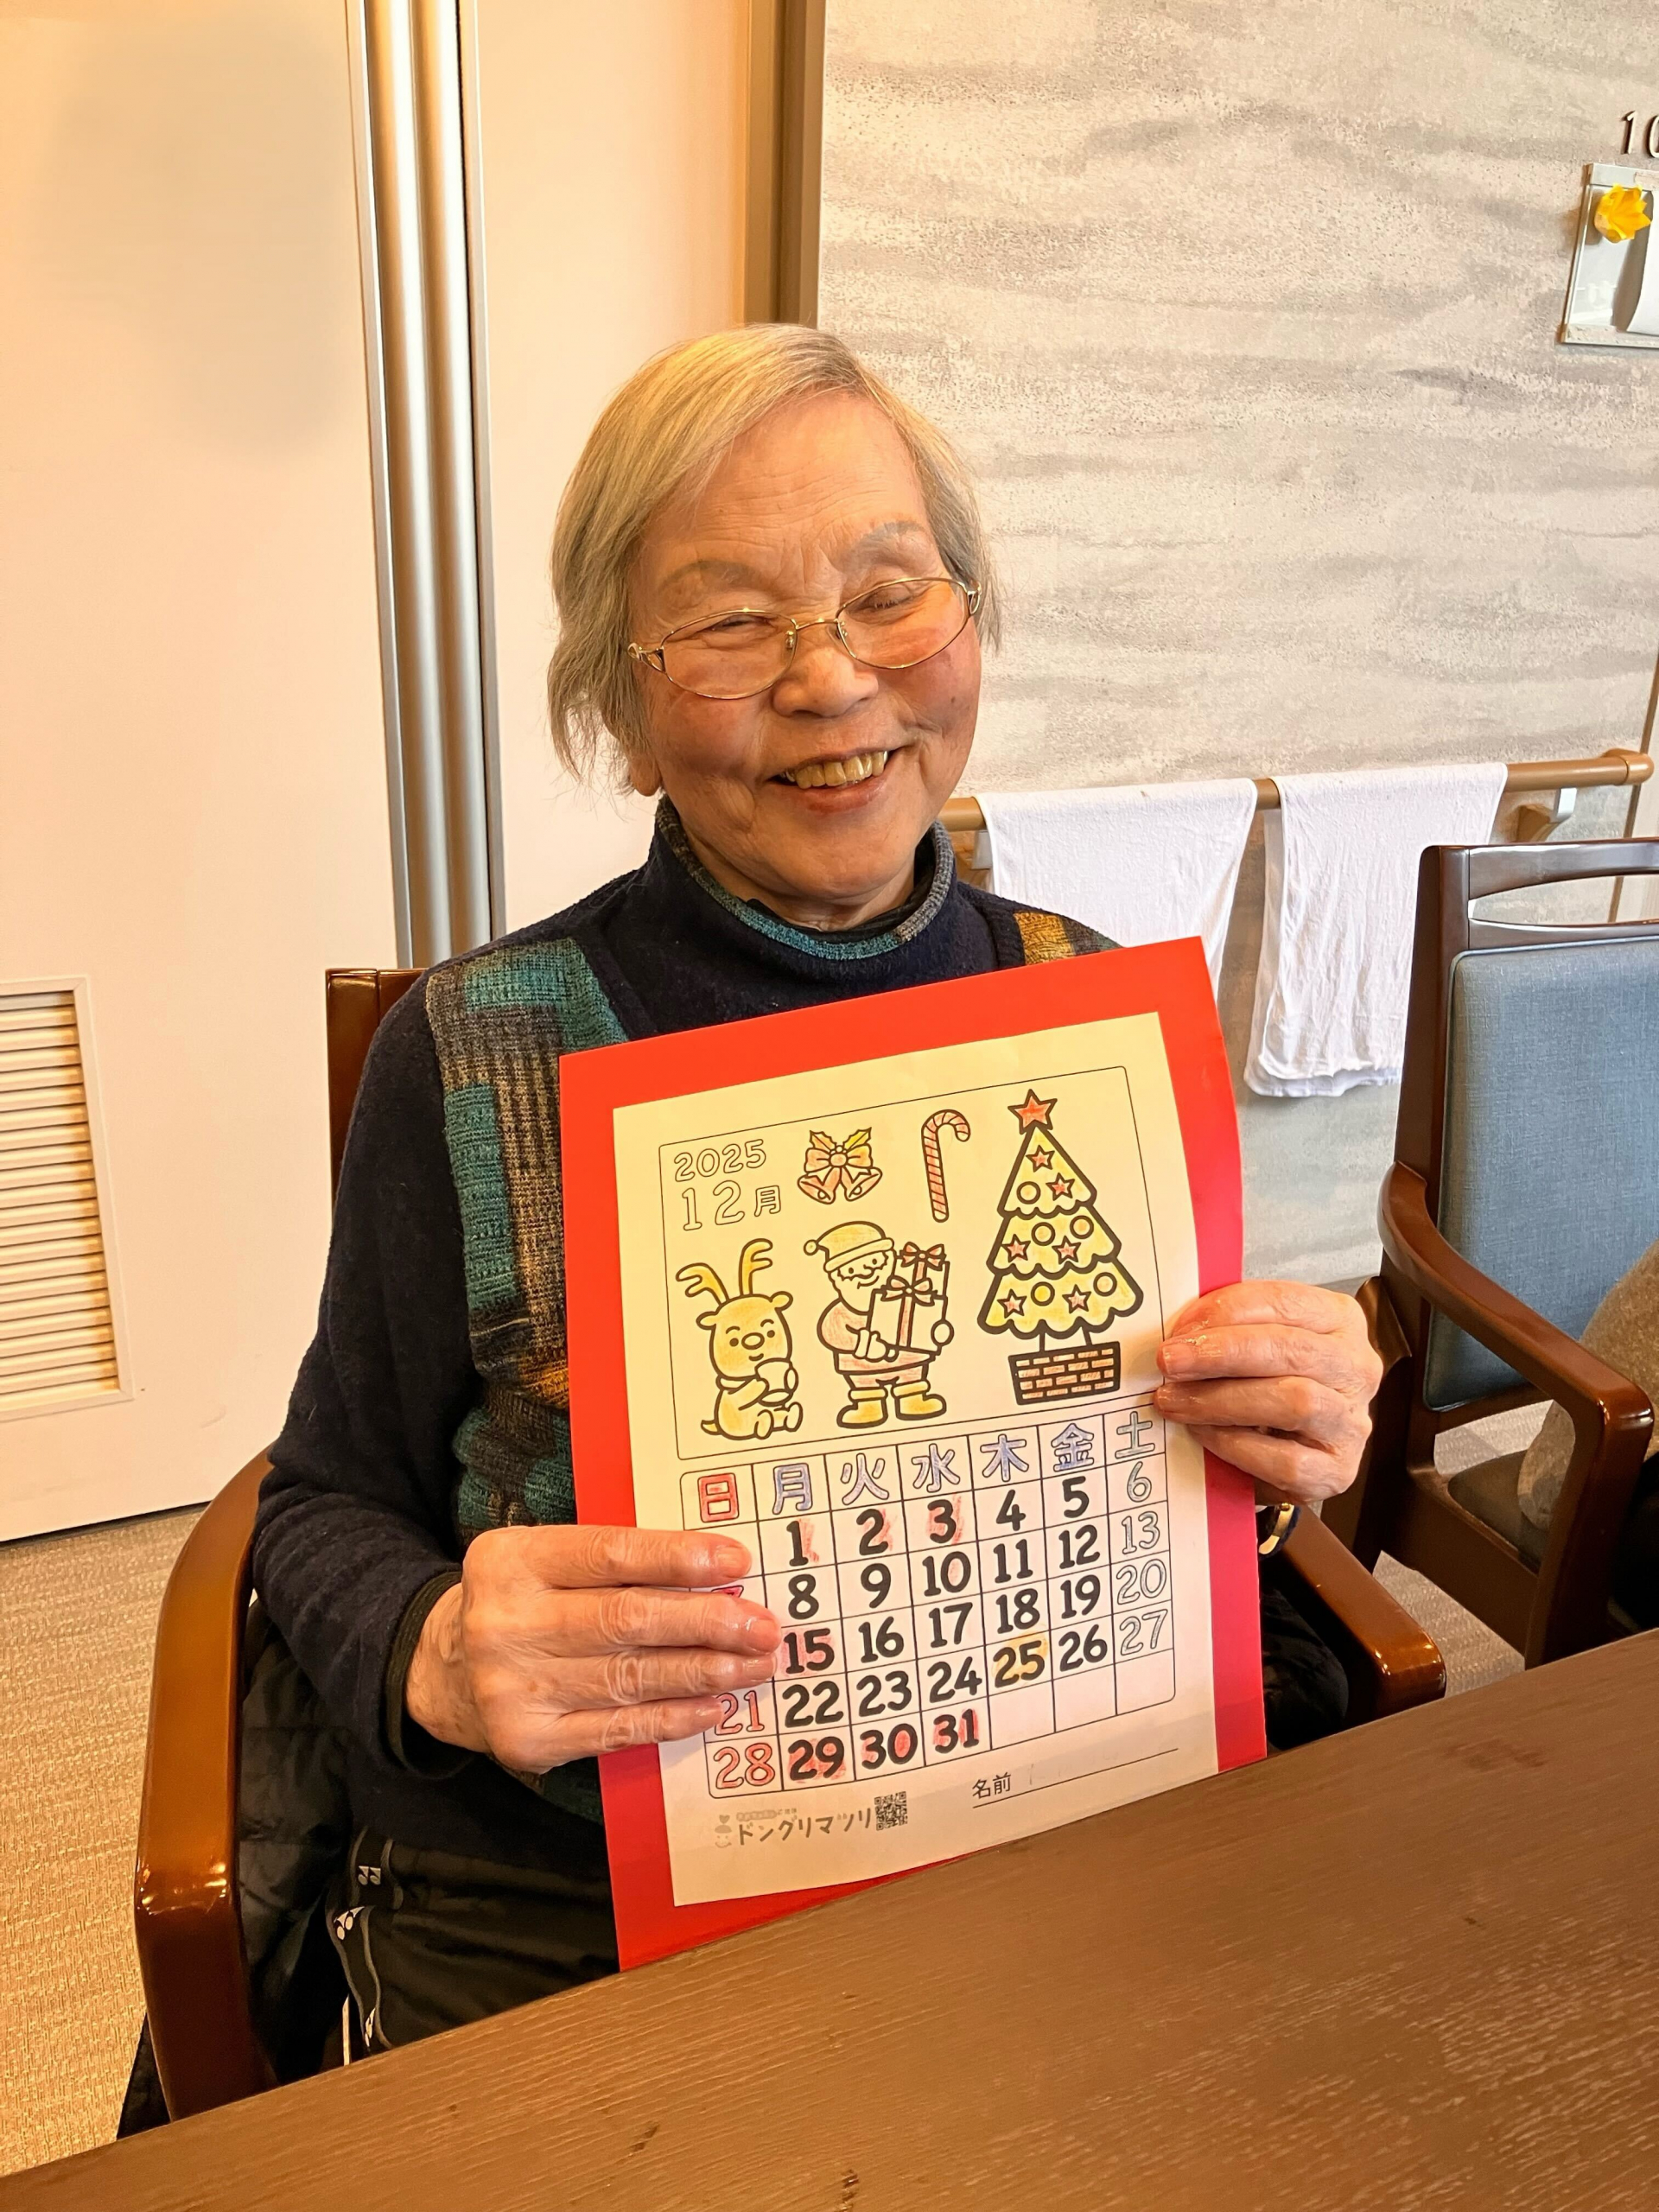 10
2025
12月
日 月 火 水 木 金 土
1 2 3 4 5 6
8 9 10 11 12 13
15 16 17 18 19 20
21 22 23 24 25 26 27
28 29 30 31
名前
ドングリマツリ